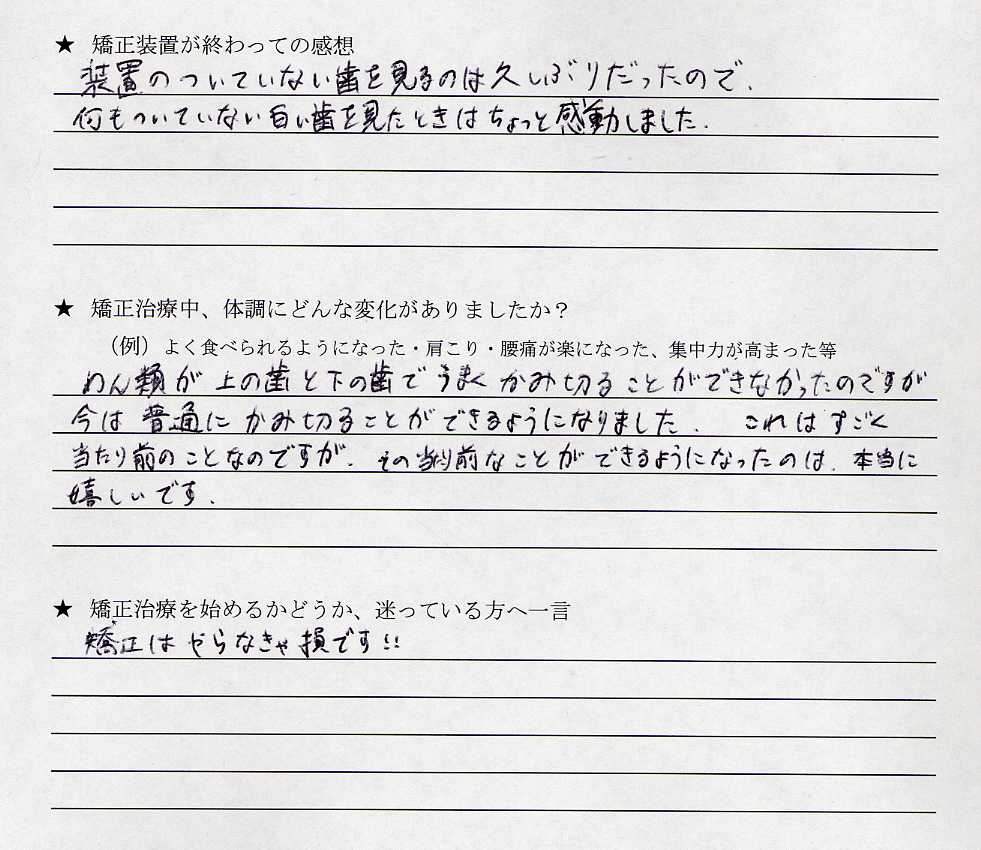 ★ 矯正装置が終わっての感想
装置のついていない歯を見るのは久しぶりだったので、
何もついていない白い歯を見たときはちょっと感動しました.
★ 矯正治療中、体調にどんな変化がありましたか？
（例）よく食べられるようになった・肩こり・腰痛が楽になった、集中力が高まった等
めん類が上の歯と下の歯でうまくかみ切ることができなかったのですが
今は普通にかみ切ることができるようになりました. これはすごく
当たり前のことなのですが、その当り前なことができるようになったのは、本当に
嬉しいです.
★ 矯正治療を始めるかどうか、迷っている方へ一言
矯正はやらなきゃ損です!!